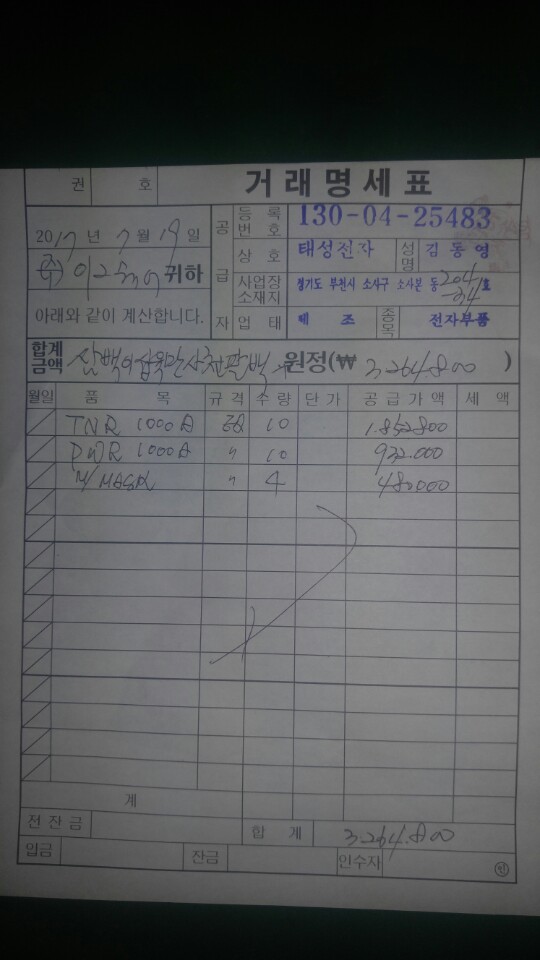 권 호 거래명세표
2017년 7월 19일
귀하
아래와 같이 계산합니다.
공급자
등록번호 130-04-25483
상호 태성전자 성명 김동영
사업장소재지 경기도 부천시 소사구 소사본동
업태 제조 종목 전자부품
합계금액 원정(₩ 3,264,800 )
월일 품목 규격 수량 단가 공급가액 세액
TNR 1000A 10 1.852800
PWR 1000A " 10 932.000
M/MASK " 4 480000
계
전잔금 합계 3.264.800
입금 잔금 인수자 ㊞